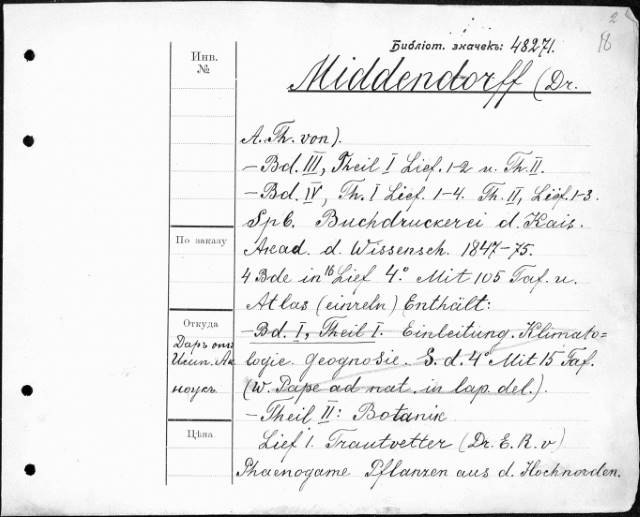 2
18
Библіот. значекъ: 48271.
Инв.
№
Middendorff (Dr.
A. Th. von).
– Bd. III, Theil I Lief. 1-2 u. Th. II.
– Bd. IV, Th. I Lief. 1-4. Th. II, Lief. 1-3.
Spb. Buchdruckerei d. Kais.
По заказу
Akad. d. Wissensch. 1847-75.
4 Bde in 16 Lief 4.° Mit 105 Taf. u.
Atlas (einzeln) Enthält:
Откуда
– Bd. I, Theil I. Einleitung. Klimato-
Даръ отъ
logie. Geognosie. S. d. 4° Mit 15 Taf.
Имп. Ак
наукъ
(W. Pape ad nat. in lap. del.).
– Theil II: Botanik
Цѣна
Lief 1. Trautvetter (Dr. E. R. v)
Phaenogame Pflanzen aus d. Hochnorden.